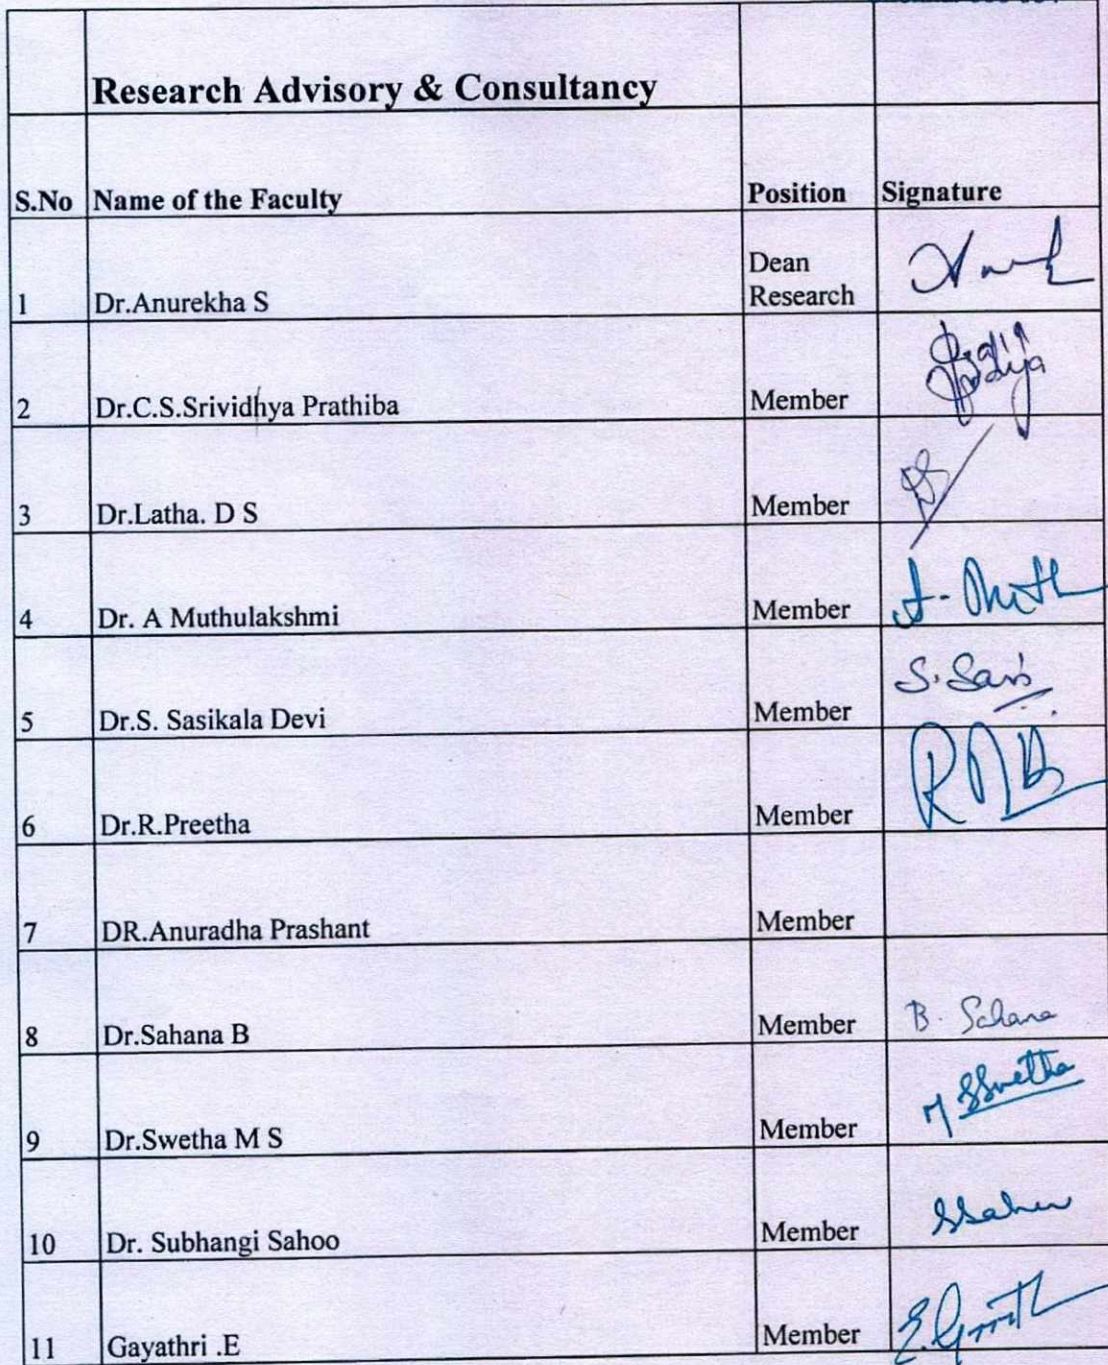 Research Advisory & Consultancy
S.No Name of the Faculty Position Signature
1 Dr.Anurekha S Dean Research
2 Dr.C.S.Srividhya Prathiba Member
3 Dr.Latha. D S Member
4 Dr. A Muthulakshmi Member
5 Dr.S. Sasikala Devi Member S. Sasi
6 Dr.R.Preetha Member
7 DR.Anuradha Prashant Member
8 Dr.Sahana B Member B. Sahana
9 Dr.Swetha M S Member
10 Dr. Subhangi Sahoo Member
11 Gayathri .E Member